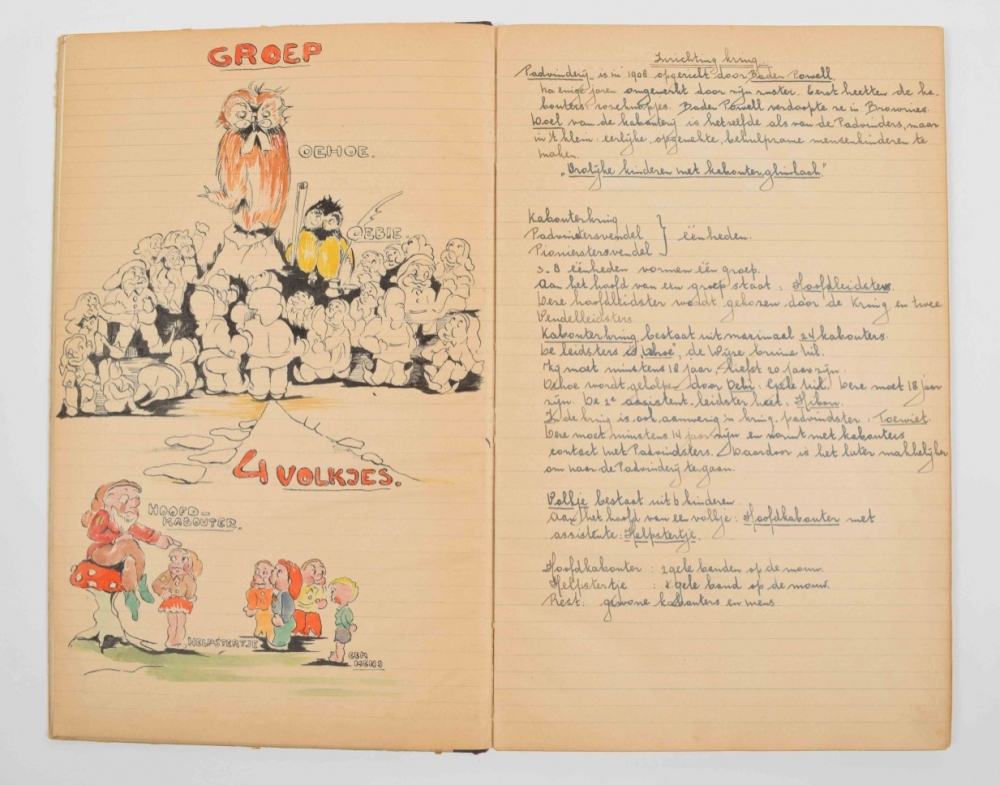 GROEP
OEHOE.
OEBIE
4 VOLKJES.
HOOFD-
KABOUTER.
HELPSTERTJE
EEN
MENS
Inrichting kring
Padvinderij is in 1908 opgericht door Baden Powell
na enige jaren omgewerkt door zijn zuster. Eerst heetten de ka-
bouters roseknopjes. Baden Powell verdoopte ze in Brownies.
Doel van de kabouterij is hetzelfde als van de Padvinders, maar
in 't klein: eerlijke opgewekte, behulpzame mensenkinderen te
maken.
"Vrolijke kinderen met kabouterglimlach"
Kabouterkring
Padvindstersvendel } eenheden.
Pionierstersvendel
eenheden vormen één groep.
Aan het hoofd van een groep staat: Hoofdleidster.
Deze hoofdleidster wordt gekozen door de Kring en twee
Vendelleidsters.
Kabouterkring bestaat uit maximaal 24 kabouters.
De leidsters is Oehoe, de Wijze bruine Uil.
Zij moet minstens 18 jaar, liefst 20 jaar zijn.
Oehoe wordt geholpen door Oebi. Gele Uil. Deze moet 18 jaar
zijn. De 2e assistent-leidster heet: Hibou.
In de kring is ook aanwezig een kring padvindster: Toewiet.
Deze moet minstens 14 jaar zijn en vormt met kabouters
contact met Padvindsters. Daardoor is het later makkelijker
om naar de Padvinderij te gaan.
Volkje bestaat uit 6 kinderen
Aan het hoofd van een volkje: Hoofdkabouter met
assistente: Helpstertje.
Hoofdkabouter : 2 gele banden op de mouw.
Helpstertje : 1 gele band op de mouw.
Rest: gewone kabouters en mens